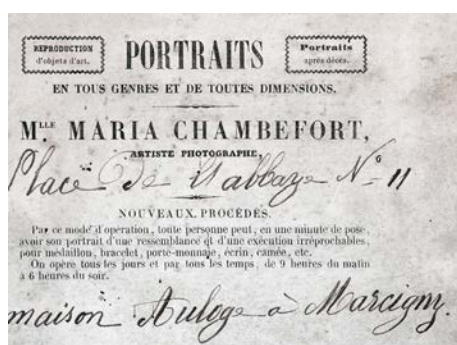 REPRODUCTION
d'objets d'art.
PORTRAITS
Portraits
après décès.
EN TOUS GENRES ET DE TOUTES DIMENSIONS.
MLLE MARIA CHAMBEFORT,
ARTISTE PHOTOGRAPHE,
Place de l'abbaye No 11
NOUVEAUX PROCÉDÉS.
Par ce mode d'operation, toute personne peut, en une minute de pose,
avoir son portrait d'une ressemblance et d'une exécution irréprochables,
pour médaillon, bracelet, porte-monnaie, écrin, camée, etc.
On opère tous les jours et par tous les temps, de 9 heures du matin
à 6 heures du soir.
maison Auloge à Marcigny.